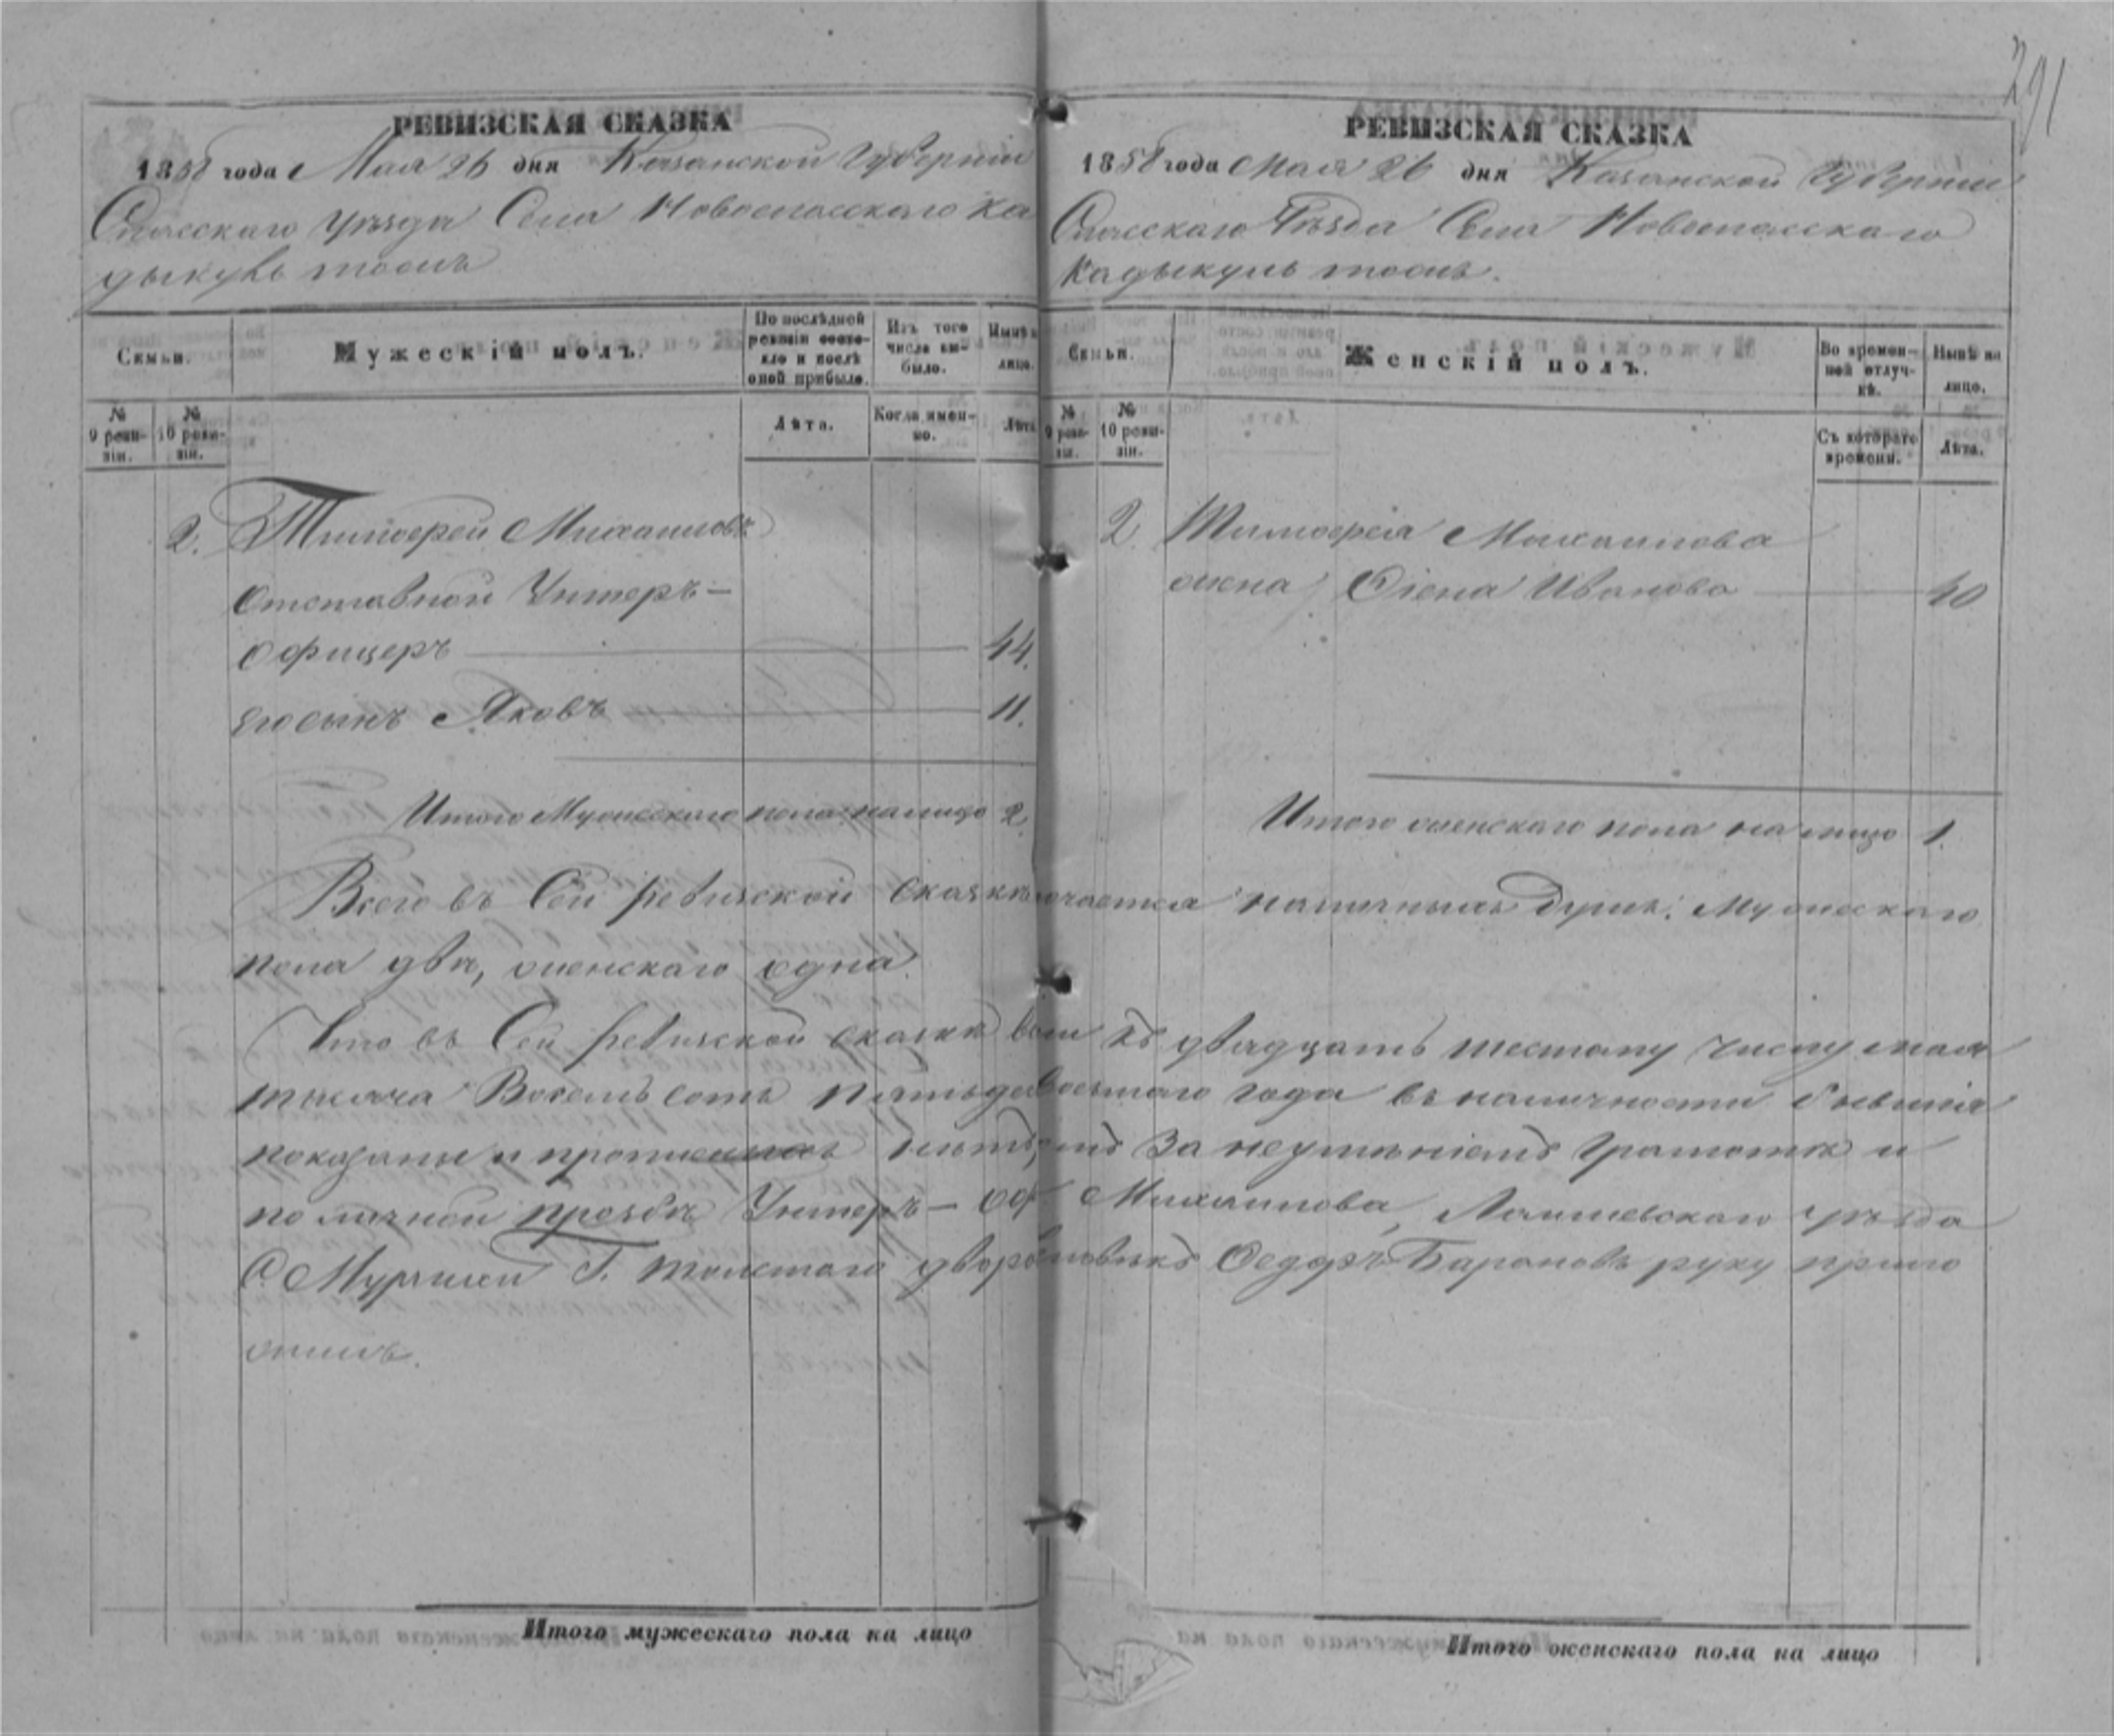 291
РЕВИЗСКАЯ СКАЗКА
1858 года Мая 26 дня Казанской Губернии
Спасскаго Уѣзда Села Новоспасскаго Ка
дыкуль тоожъ
Семьи.
Мужескій полъ.
По послѣдней ревизіи состояло и послѣ оной прибыло.
Изъ того числа выбыло.
Нынѣ на лицо.
№ 9 ревизіи.
№ 10 ревизіи.
Лѣта.
Когда именно.
Лѣта
2. Тимофей Михаиловъ
отставной Унтеръ-
офицеръ 44.
его сынъ Яковъ 11.
Итого Мужескаго пола на лицо 2.
РЕВИЗСКАЯ СКАЗКА
1858 года Мая 26 дня Казанской Губернии
Спасскаго Уѣзда Села Новоспасскаго
Кадыкуль тоожъ.
Семьи.
Женскій полъ.
Во временной отлучкѣ.
Нынѣ на лицо.
№ 9 ревизіи.
№ 10 ревизіи.
Съ котораго времени.
Лѣта.
2. Тимофея Михаилова
жена Елена Иванова 40
Итого женскаго пола на лицо 1.
Всего въ Сей ревизской сказкѣ наличныхъ душъ: Мужескаго
пола два, женскаго одна.
Что въ Сей ревизской сказкѣ всѣ къ двадцать шестому числу мая
тысяча Восемьсотъ года въ наличности бывшія
показаны и нѣтъ, за неумѣніемъ грамотѣ и
по личной прозьбѣ Унтеръ-Оф Михаилова, Лаишевскаго уѣзда
С. Г. Толстаго дворовый Федоръ Барановъ руку прило
жилъ.
Итого мужескаго пола на лицо
Итого женскаго пола на лицо